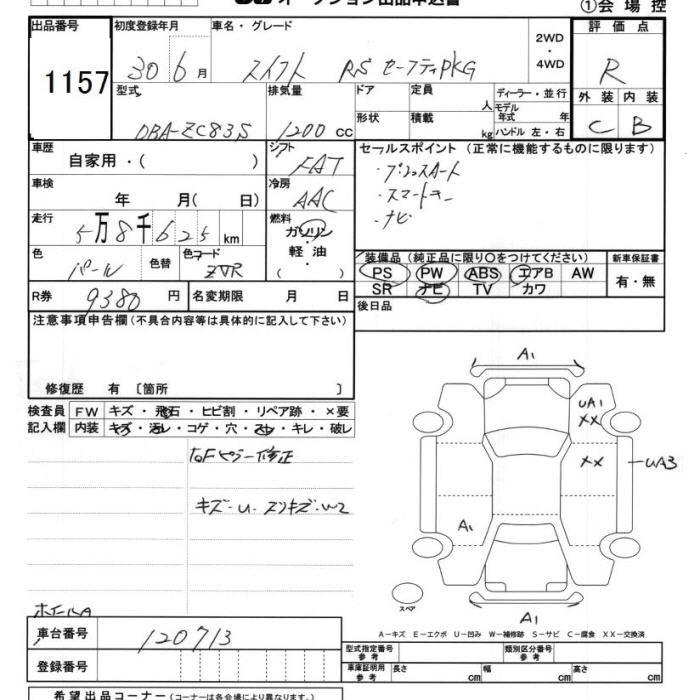 オークション出品申込書
①会 場 控
出品番号
1157
初度登録年月
30年6月
車名・グレード
スイフト RS セーフティPKG
2WD
・
4WD
評価点
R
外装 内装
C B
型式
DBA-ZC83S
排気量
1200 CC
ドア
形状
定員
人
積載
kg
ディーラー・並行
モデル年式 年
ハンドル 左・右
車歴
自家用・( )
シフト
FAT
車検
年 月( 日)
冷房
AAC
走行
5万8千625km
燃料
ガソリン
・
軽油
( )
色
パール
色替
色コード
ZVR
R券
9380 円
名変期限 月 日
セールスポイント (正常に機能するものに限ります)
・プッシュスタート
・スマートキー
・ナビ
装備品 (純正品に限り○をつけてください)
PS PW ABS エアB AW
SR ナビ TV カワ
新車保証書
有・無
後日品
注意事項申告欄(不具合内容等は具体的に記入して下さい)
修復歴 有 〔箇所 〕
検査員記入欄
FW キズ・飛石・ヒビ割・リペア跡・×要
内装 キズ・汚レ・コゲ・穴・スレ・キレ・破レ
右Fピラー修正
キズ・U・スリキズ・W2
ホイールA
A1
UA1
XX
XX
UA3
A1
A1
スペア
A-キズ E-エクボ U-凹み W-補修跡 S-サビ C-腐食 XX-交換済
車台番号
120713
登録番号
型式指定番号
参考
類別区分番号
参考
車庫証明用
参考
長さ cm
幅 cm
高さ cm
希望出品コーナー(コーナーは各会場により異なります。)